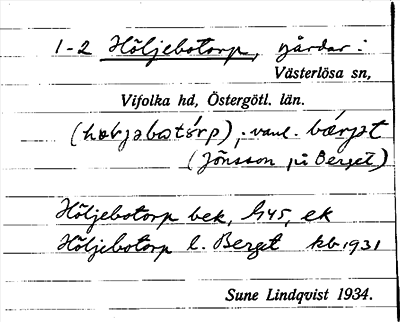 1-2 Höljebotorp, gårdar:
Västerlösa sn,
Vifolka hd, Östergötl. län.
(hærjabotórp); vanl. bǽrjat
(Jönsson på Berget)
Höljebotorp bek, G45, ek
Höljebotorp l. Berget kb 1931
Sune Lindqvist 1934.